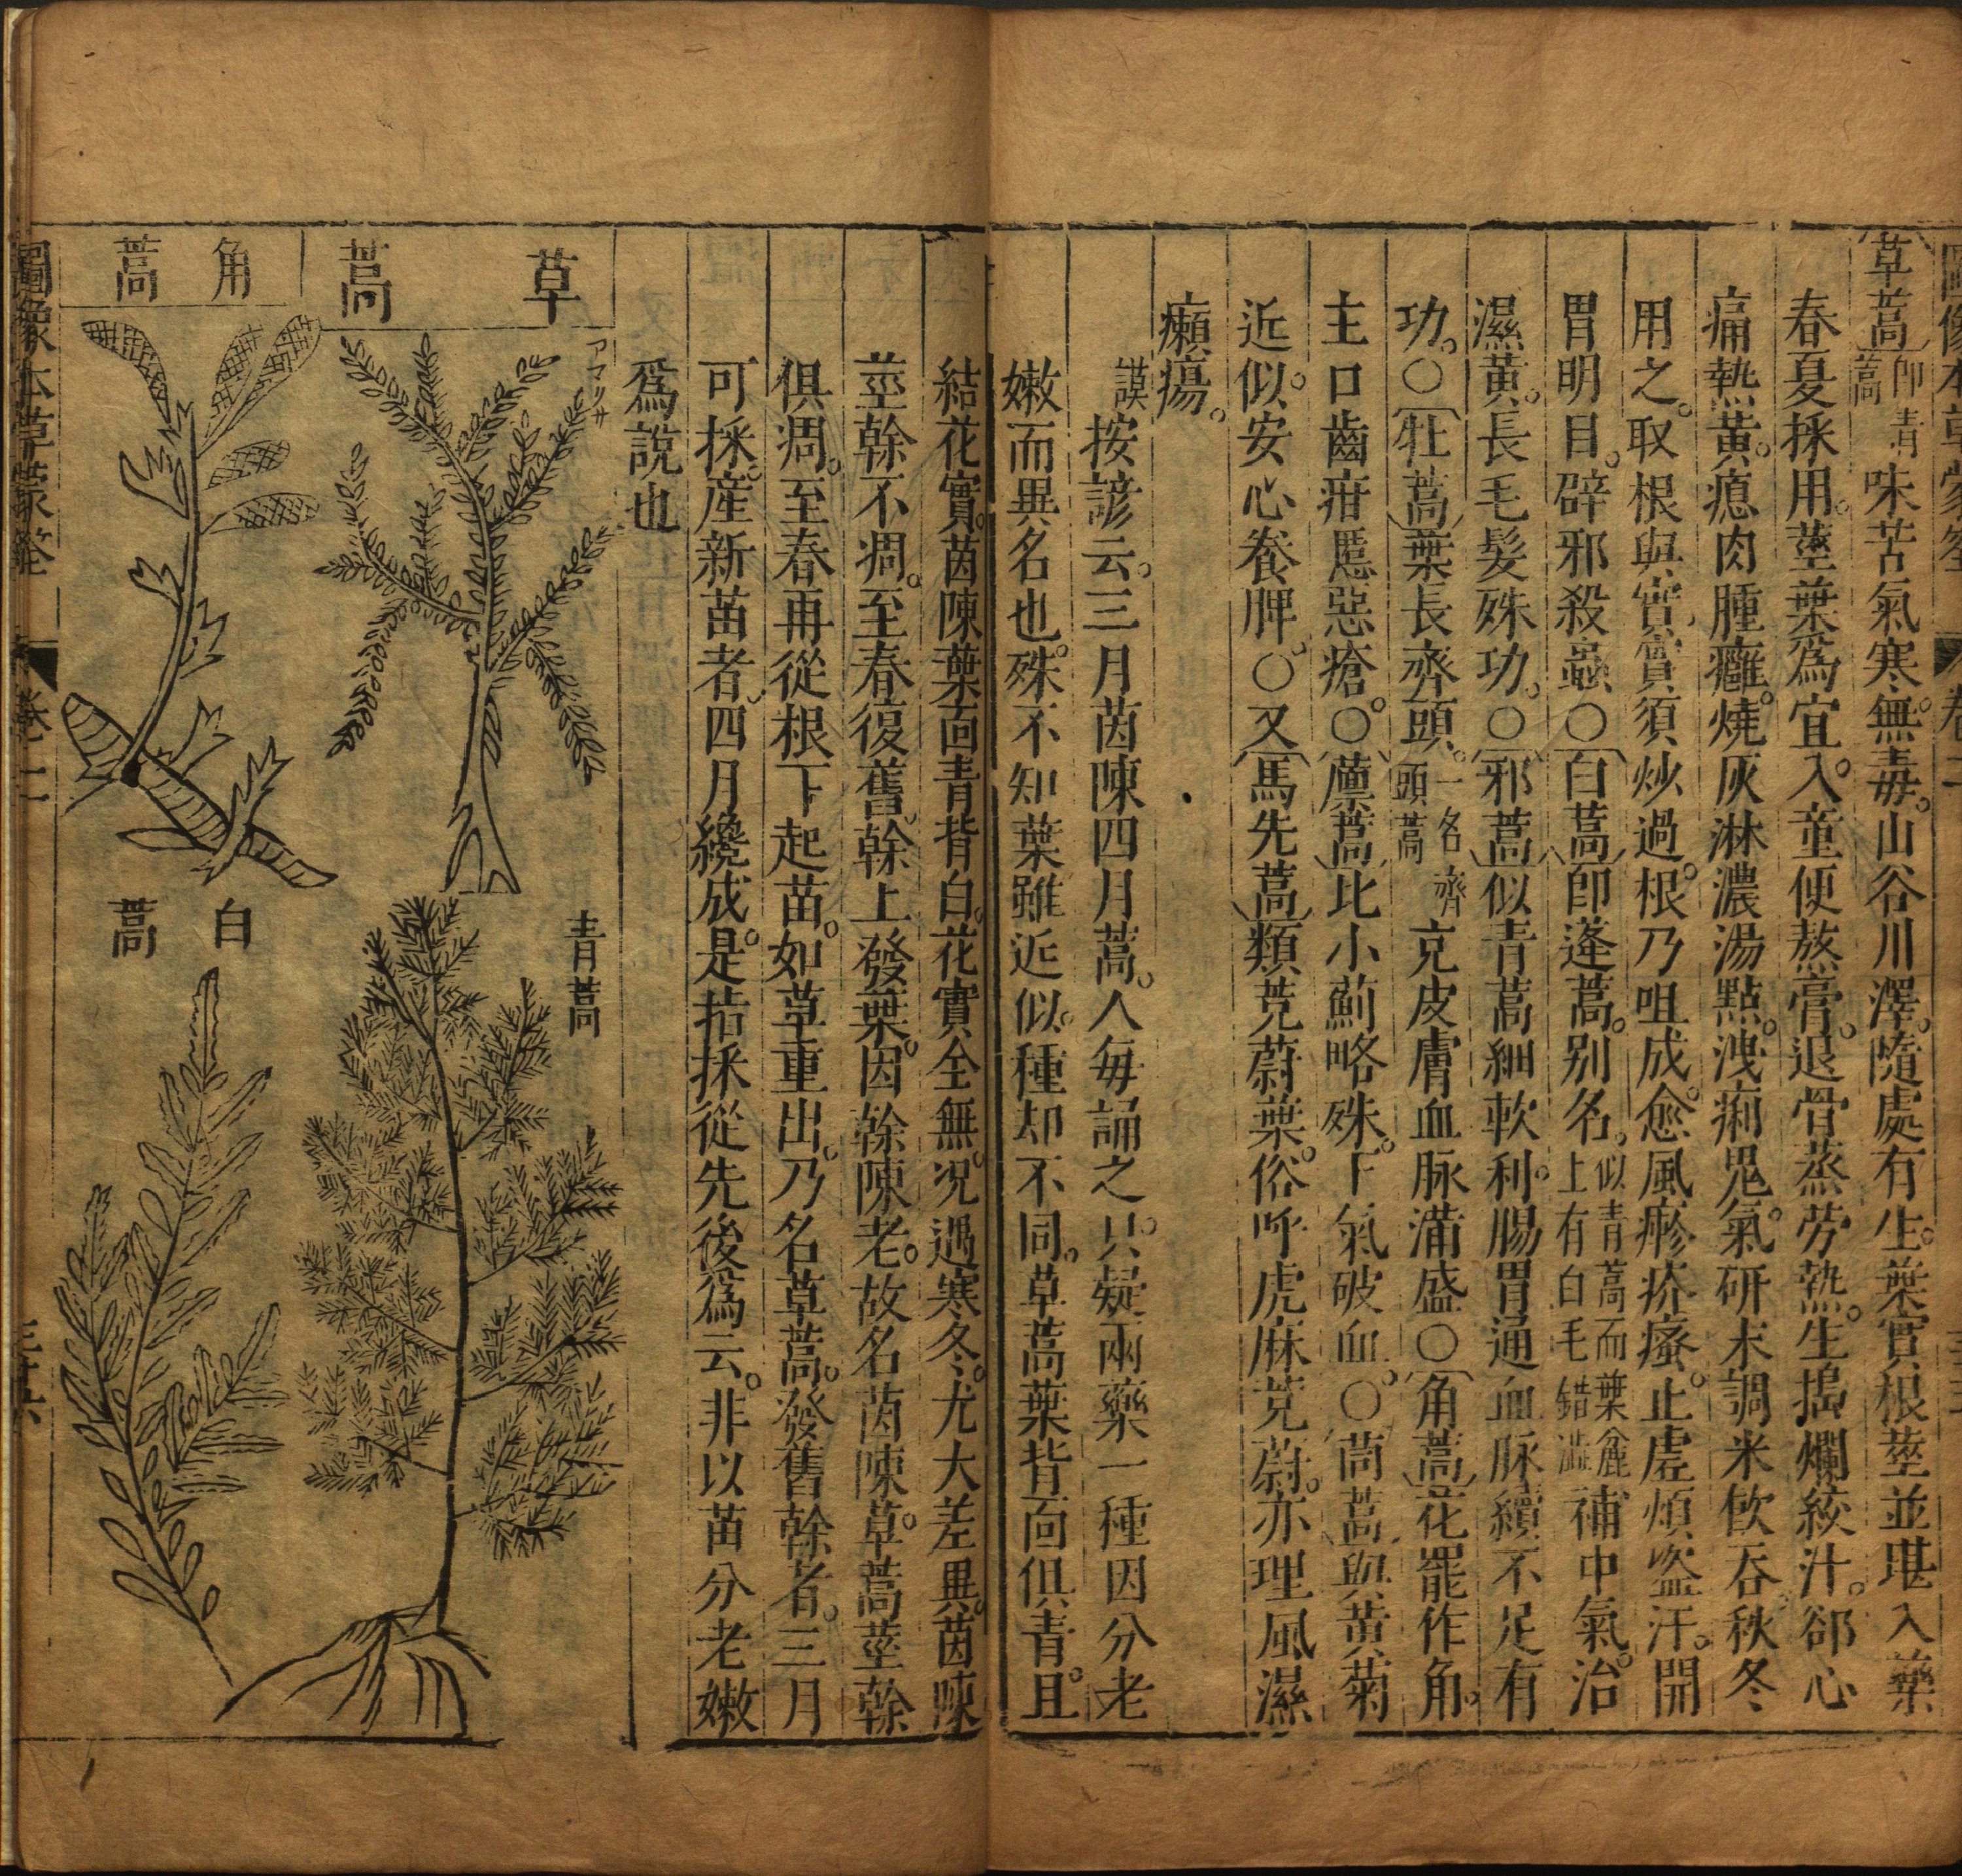 草蒿即青蒿味苦氣寒無毒。山谷川澤。隨處有生。葉實根莖並堪入藥
春夏採用。莖葉爲宜。入童便熬膏。退骨蒸勞熱。生搗爛絞汁。郤心
痛熱黃。瘜肉腫癰。燒灰淋濃湯點。洩痢鬼氣。研末調米飮吞。秋冬
用之。取根與實。實須炒過。根乃咀成。愈風瘮疥瘙。止虛煩盜汗。開
胃明目。辟邪殺蟲〇白蒿即蓬蒿。別名。似青蒿而葉麄上有白毛錯澁補中氣。治
濕黃。長毛髮殊功。〇邪蒿似青蒿細軟。利腸胃通血脉續不足有
功。〇牡蒿葉長齊頭。一名齊頭蒿充皮膚血脉滿盛〇角蒿花罷作角。
主口齒疳䘌惡瘡。〇藁蒿比小薊略殊。下氣破血。〇茼蒿與黃菊
近似。安心養脾。〇又馬先蒿類茺蔚葉。俗呼虎麻茺蔚。亦理風濕
癩瘍。
謨按諺云。三月茵陳四月蒿。人每誦之。只疑兩藥一種因分老
嫩而異名也。殊不知葉雖近似。種却不同。草蒿葉背面俱青。且
結花實。茵陳葉面青背白。花實全無。况遇寒冬。尤大差異。茵陳
莖幹不凋。至春復舊。幹上發葉。因幹陳老。故名茵陳。草蒿莖幹
俱凋。至春再從根下起苗。如草重出。乃名草蒿。發舊幹者。三月
可採。產新苗者。四月纔成。是指採從先後爲云。非以苗分老嫩
爲說也
草蒿
青蒿
角蒿
白蒿
圖像本草蒙筌 卷二